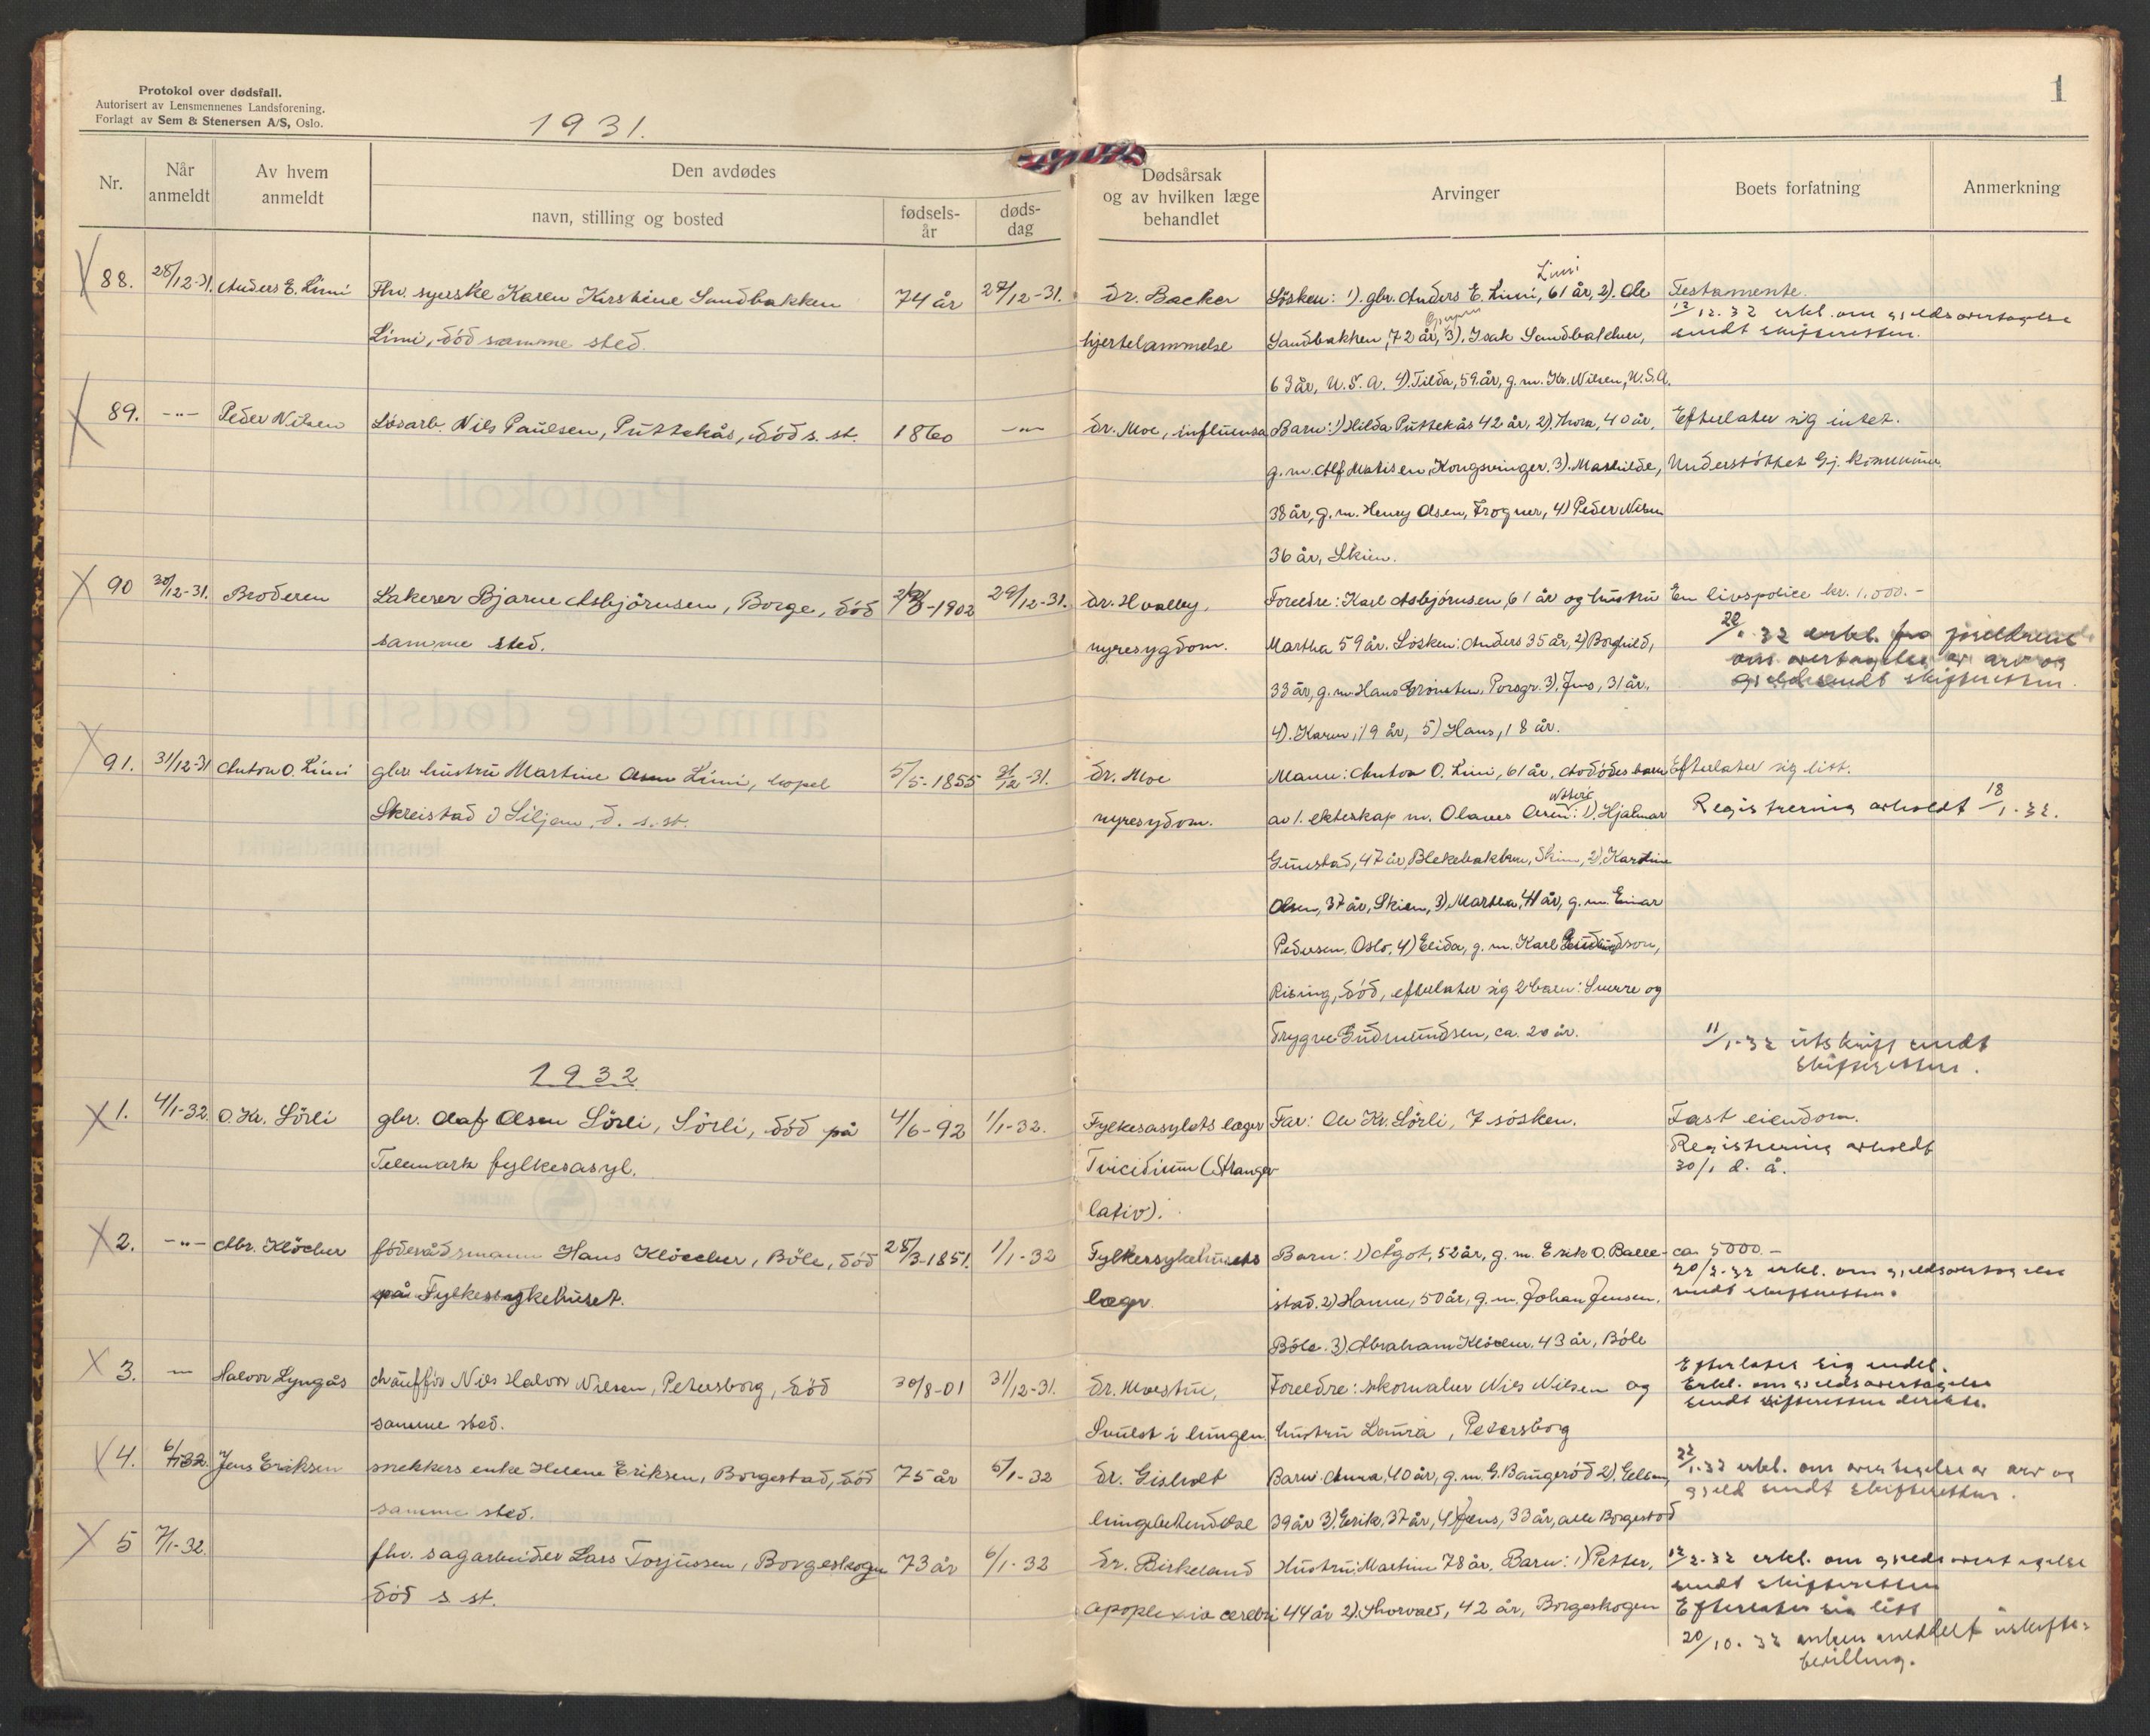 Protokol over dødsfall.
Autorisert av Lensmennenes Landsforening.
Forlagt av Sem & Stenersen A/S, Oslo.
1931.
1
Nr.
Når anmeldt
Av hvem anmeldt
Den avdødes
navn, stilling og bosted
fødsels-år
døds-dag
Dødsårsak
og av hvilken læge
behandlet
Arvinger
Boets forfatning
Anmerkning
88. 28/12-31. Anders E. Limi Fhv. syerske Karen Kirstine Sandbakken 74 år 27/12-31. Dr. Backer Søsken: 1). gbr. Anders E. Limi, 61 år, 2). Ole Testamente.
Limi
12/12.32 erkl. om gjeldsovertagelse
Limi, død samme sted. hjertelammelse Sandbakken, 72 år, 3). Isak Sandbakken, sendt skifteretten.
63 år, U.S.A. 4). Tilda, 59 år, g.m. Kr. Nilsen, U.S.A.
89. -"- Peder Nilsen Løsarb. Nils Paulsen, Puttekås, død s. st. 1860 -"- Dr. Moe, influensa Barn: 1) Hilda Puttekås 42 år, 2). Thora, 40 år, Efterlater sig intet.
g.m. Alf Matisen, Kongsvinger. 3). Mathilde, Understøttet Gj. kommune.
38 år, g.m. Henry Olsen, Frogner, 4) Peder Nilsen
36 år, Skien.
90 30/12-31. Broderen Lakerer Bjarne Asbjørnsen, Borge, død -1902 29/12-31. Dr. Hvalby, Foreldre: Karl Asbjørnsen, 61 år og hustru En livspolice kr. 1.000.-
samme sted. nyresygdom. Martha 59 år. Søsken: Anders 35 år, 2) Borghild, 32 erkl. fra foreldrene
om overtagelse av arv og
33 år, g.m. Hans Grønsten, Porsgr. 3). Jens, 31 år, gjeld sendt skifteretten.
4). Karen, 19 år, 5) Hans, 18 år.
91. 31/12-31 Anton O. Limi gbr. hustru Martine Limi, hopel 5/5-1855 31/12-31. Dr. Moe Mann: Anton O. Limi, 61 år, Avdødes barn Efterlater sig litt.
Skreistad i Siljan, d. s. st. nyresydom. av 1. ekteskap m. Olaves Olsen: 1). Hjalmar Registrering avholdt 18/1.32.
Gunstad, 47 år, Blekebakken, Skien, 2). Karstine
Olsen, 37 år, Skien, 3) Martha, 41 år, g.m. Einar
Pedersen, Oslo, 4) Elida, g.m. Karl
Rising, død, efterlater sig 2 barn: Sverre og
Trygve Gudmundsen, ca. 20 år.
11/1-32 utskrift sendt
skifteretten.
1932
1. 4/1-32. O. Kr. Sørli gbr. Olaf Olsen Sørli, Sørli, død på 4/6-92 1/1-32. Fylkesasylets læger Far: Ole Kr. Sørli, 7 søsken. Fast eiendom.
Telemark fylkesasyl. (Strangu- Registrering avholdt
lativ). 30/1 d. å.
2. -"- Abr. Kløcker føderådsmann Hans Kløcker, Bøle, død 28/3-1851. 1/1-32 Fylkessykehusets Barn: 1) Ågot, 52 år, g.m. Erik O. Balle- ca 5000.-
20/2-32 erkl. om gjeldsovertagelse
på Fylkessykehuset. læge. stad, 2) Hanne, 50 år, g.m. Johan Jensen, sendt skifteretten.
Bøle. 3). Abraham Kløcker, 43 år, Bøle
3. - Halvor Lyngås chauffør Nils Halvor Nilsen, Petersborg, død 30/8-01 31/12-31. Dr. Moestue, Foreldre: skomaker Nils Nilsen og Efterlater sig endel.
Erkl. om gjeldsovertagelse
sendt skifteretten direkte.
samme sted. Svulst i lungen hustru Laura, Petersborg
4. 6/1-32. Jens Eriksen snekkers enke Helene Eriksen, Borgestad, død 75 år 5/1-32 Dr. Gisholt Barn: Anna, 40 år, g.m. G. Bangerød 2). 22/1.32 erkl. om overtagelse av arv og
gjeld sendt skifteretten.
samme sted. lungebetendelse 39 år 3). Erik, 37 år, 4) Jens, 33 år, alle Borgestad
5 7/1-32. fhv. sagarbeider Lars Torjussen, Borgeskogen 73 år 6/1-32 Dr. Birkeland Hustru: Martine 78 år. Barn: 1) Petter, 12/2-32 erkl. om gjeldsovertagelse
sendt skifteretten
død s. st. apoplexia cerebri 44 år 2). Thorvald, 42 år, Borgeskogen Efterlater sig litt
20/10.32 enken meddelt uskifte-
bevilling.